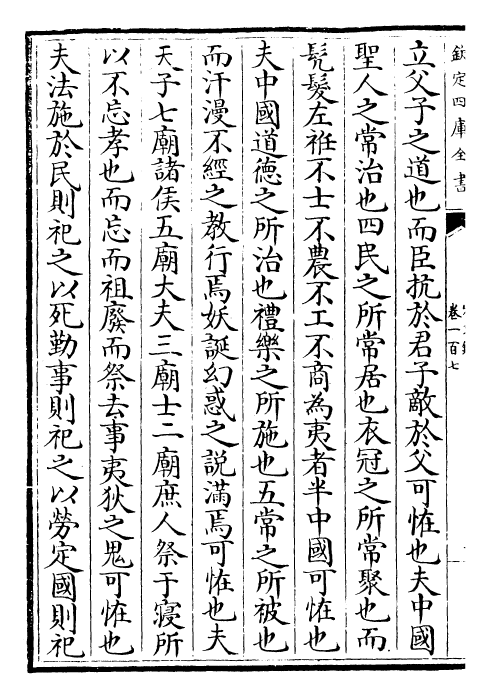 欽定四庫全書
卷一百七
立父子之道也而臣抗於君子敵於父可恠也夫中國
聖人之常治也四民之所常居也衣冠之所常聚也而
髠髮左袵不士不農不工不商為夷者半中國可恠也
夫中國道德之所治也禮樂之所施也五常之所被也
而汗漫不經之教行焉妖誕幻惑之説滿焉可恠也夫
天子七廟諸侯五廟大夫三廟士二廟庶人祭于寢所
以不忘孝也而忘而祖廢而祭去事夷狄之鬼可恠也
夫法施於民則祀之以死勤事則祀之以勞定國則祀